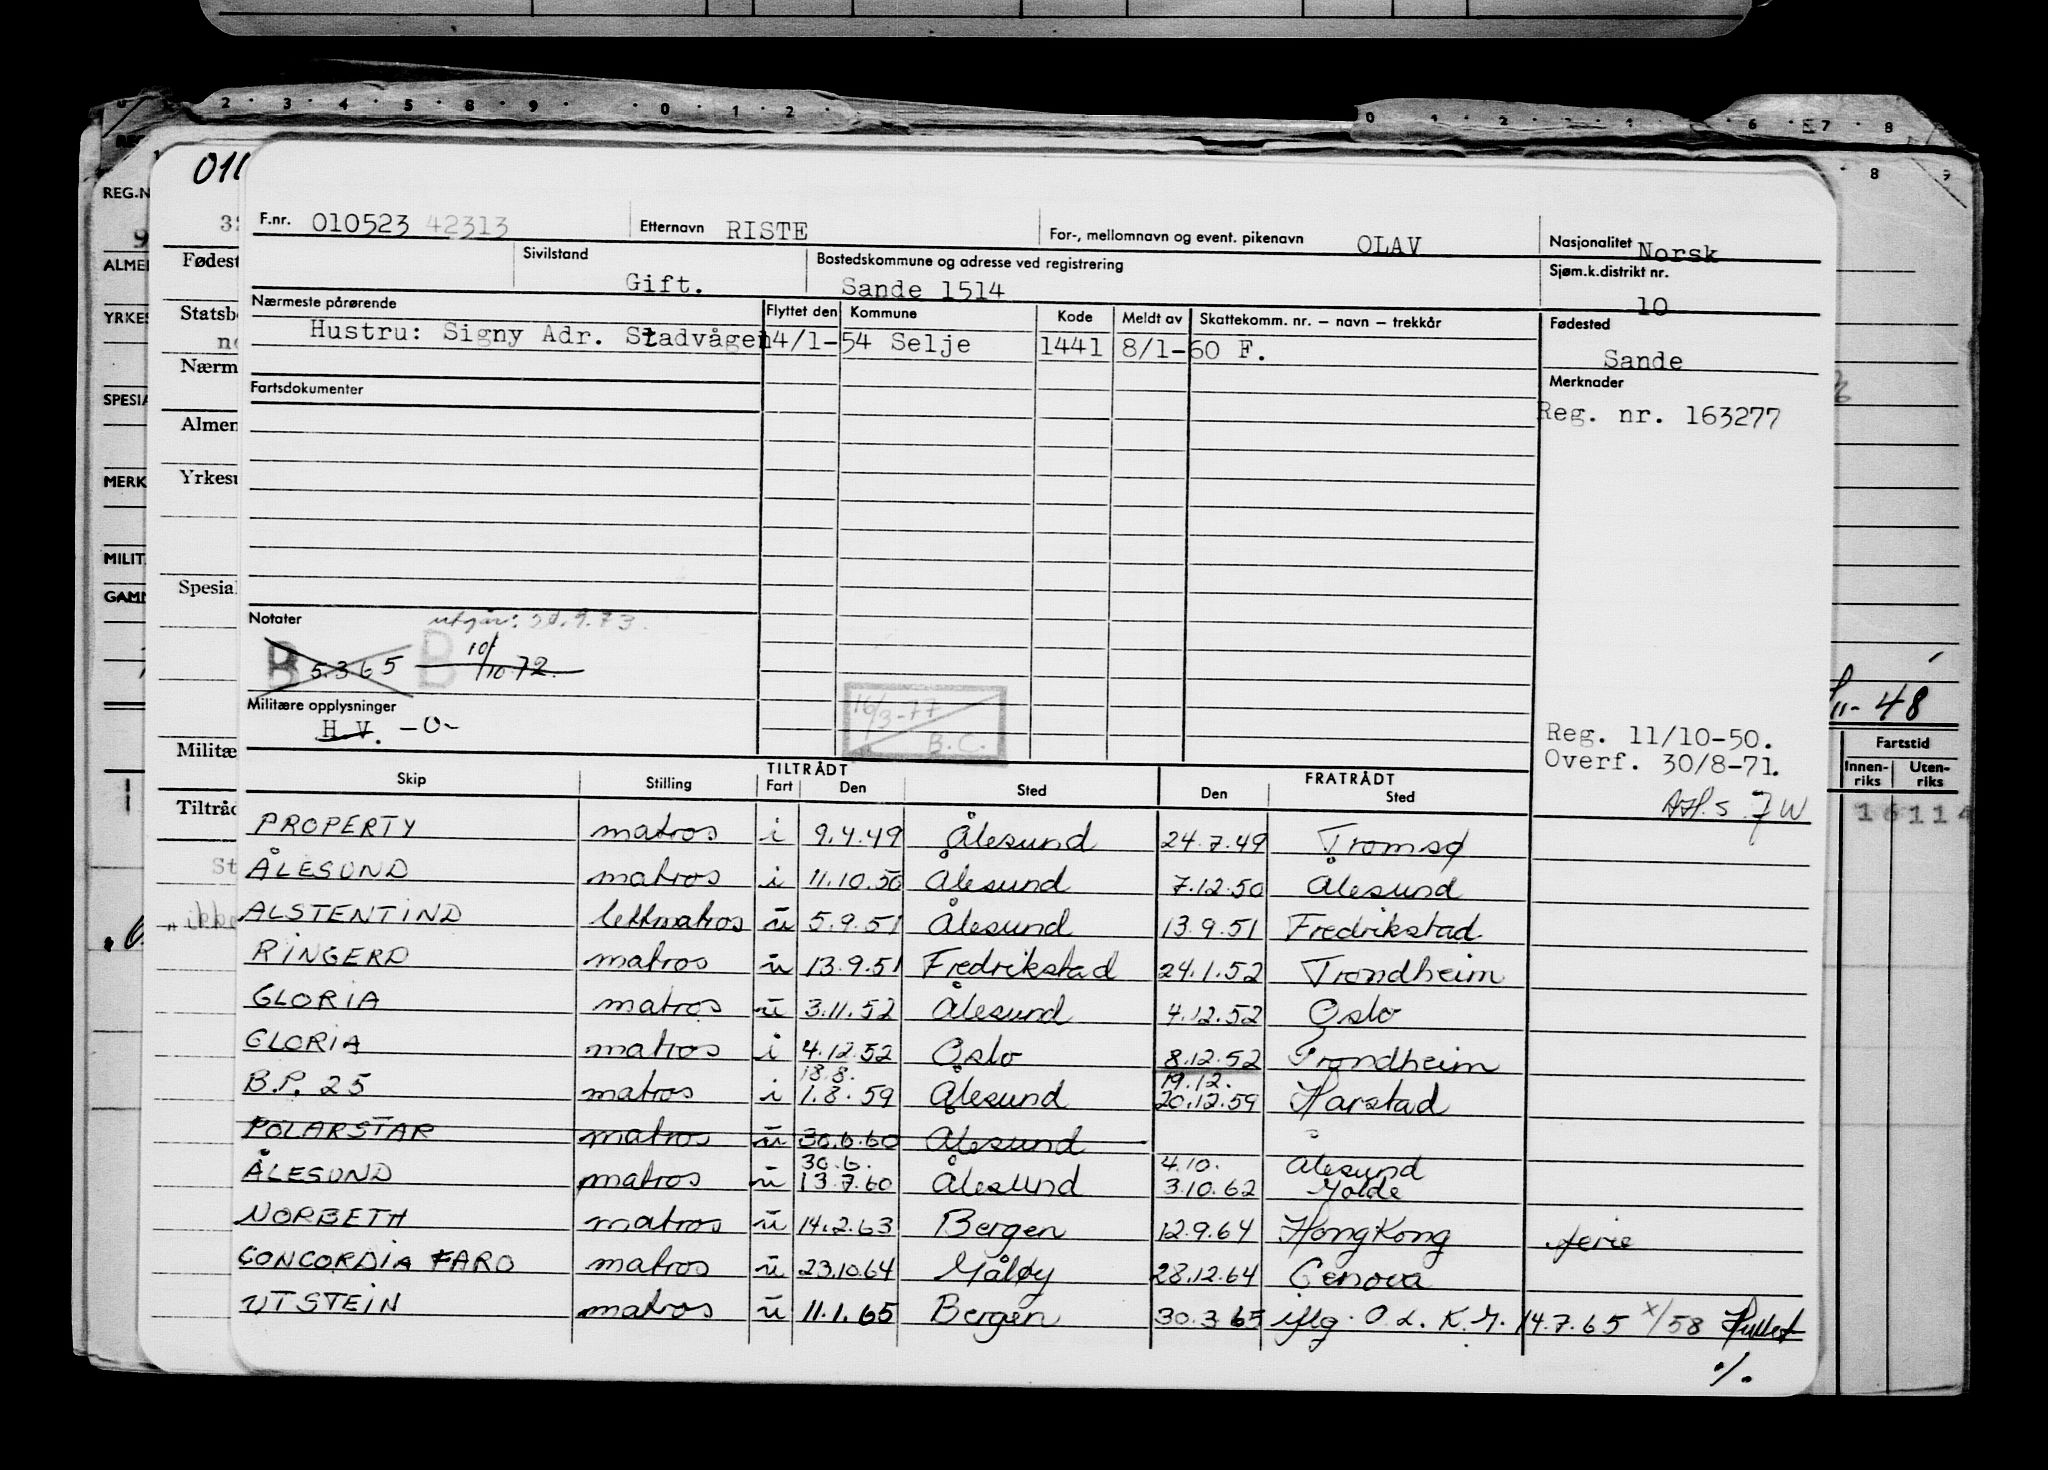 2 · 3 · 4 · 5 · 8 · 9 · · 0 · 1 · 2 ·
0 1 2 6 7 · 8
8 9
REG.N
9
ALMEN
YRKES
SPESIA
MERK
MILIT
GAMM
011
32
Fødest
Statsbo
no
Nærm
Almen
Yrkesu
Spesial
Militæ
Tiltråd
St
„ikke
F.nr. 010523 42313 Etternavn RISTE For-, mellomnavn og event. pikenavn OLAV Nasjonalitet Norsk
Sivilstand Gift. Bostedskommune og adresse ved registrering Sande 1514 Sjøm.k.distrikt nr. 10
Nærmeste pårørende Flyttet den Kommune Kode Meldt av Skattekomm. nr. – navn – trekkår Fødested
Hustru: Signy Adr. Stadvågen 14/1-54 Selje 1441 8/1-60 F. Sande
Fartsdokumenter Merknader
Reg. nr. 163277
Notater utgår: 9.73.
B 5.3.65 B 10/10.72.
Militære opplysninger
H.V. -0-
16/3-77
B.C.
Reg. 11/10-50.
Overf. 30/8-71.
11-48
Fartstid
Innen-riks Uten-riks
16114
TILTRÅDT FRATRÅDT
Skip Stilling Fart Den Sted Den Sted
PROPERTY matros i 9.4.49 Ålesund 24.7.49 Tromsø
ÅLESUND matros i 11.10.50 Ålesund 7.12.50 Ålesund
ALSTENTIND lettmatros u 5.9.51 Ålesund 13.9.51 Fredrikstad
RINGERD matros u 13.9.51 Fredrikstad 24.1.52 Trondheim
GLORIA matros u 3.11.52 Ålesund 4.12.52 Oslo
GLORIA matros i 4.12.52 Oslo 8.12.52 Trondheim
18.8. 19.12.
B.P. 25 matros i 1.8.59 Ålesund 20.12.59 Harstad
POLARSTAR matros u 30.6.60 Ålesund
30.6. 4.10. Ålesund
ÅLESUND matros u 13.7.60 Ålesund 3.10.62 Molde
NORBETH matros u 14.2.63 Bergen 12.9.64 HongKong ferie
CONCORDIA FARO matros u 23.10.64 Måløy 28.12.64 Genova
UTSTEIN matros u 11.1.65 Bergen 30.3.65 iflg. O.L.K.M. 14.7.65 x/58 Hullet
./.